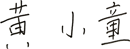 黄小童